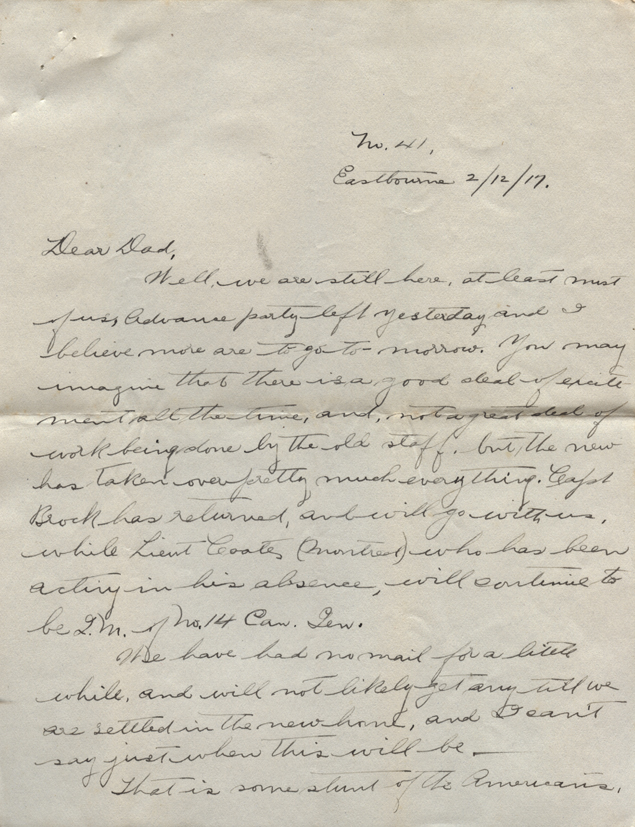 No. 41.
Eastbourne 2/12/17.
Dear Dad,
Well, we are still here, at least most
of us, Advance party left yesterday and I
believe more are to go to-morrow. You may
imagine that there is a good deal of excite
ment all the time, and, not a great deal of
work being done by the old staff, but, the new
has taken over pretty much everything. Capt
Brock has returned, and will go with us,
while Lieut Coates (Montreal) who has been
acting in his absence, will continue to
be Q.M. of No. 14 Can. Gen.
We have had no mail for a little
while, and will not likely get any till we
are settled in the new home, and I can't
say just when this will be.
That is some stunt of the Americans,